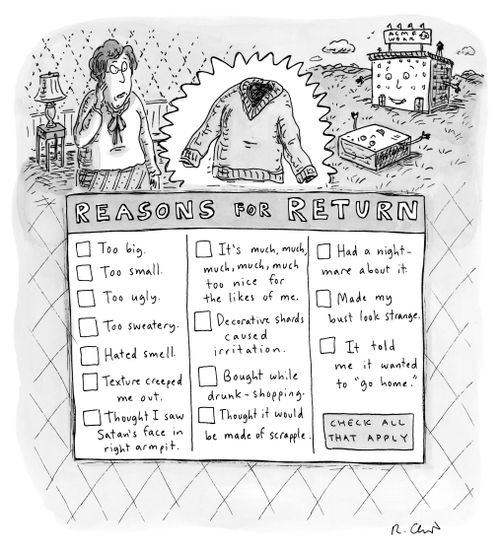 ACME
WEAR
REASONS FOR RETURN
Too big.
Too small.
Too ugly.
Too sweatery.
Hated smell.
Texture creeped
me out.
Thought I saw
Satan's face in
right armpit.
It's much, much,
much, much, much
too nice for
the likes of me.
Decorative shards
caused
irritation.
Bought while
drunk-shopping.
Thought it would
be made of scrapple.
Had a night-
mare about it.
Made my
bust look strange.
It told
me it wanted
to "go home."
CHECK ALL
THAT APPLY
R. Chast